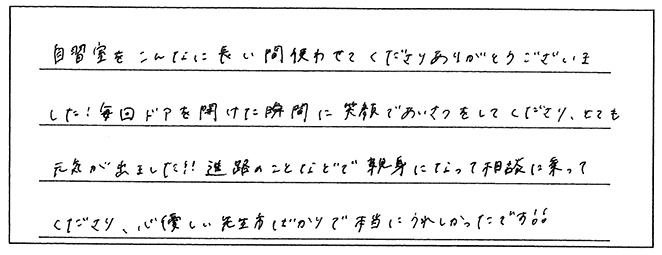 自習室をこんなに長い間使わせてくださりありがとうございま
した！毎回ドアを開けた瞬間に笑顔であいさつをしてくださり、とても
元気が出ました!!進路のことなどで親身になって相談に乗って
くださり、心優しい先生方ばかりで本当にうれしかったです!!